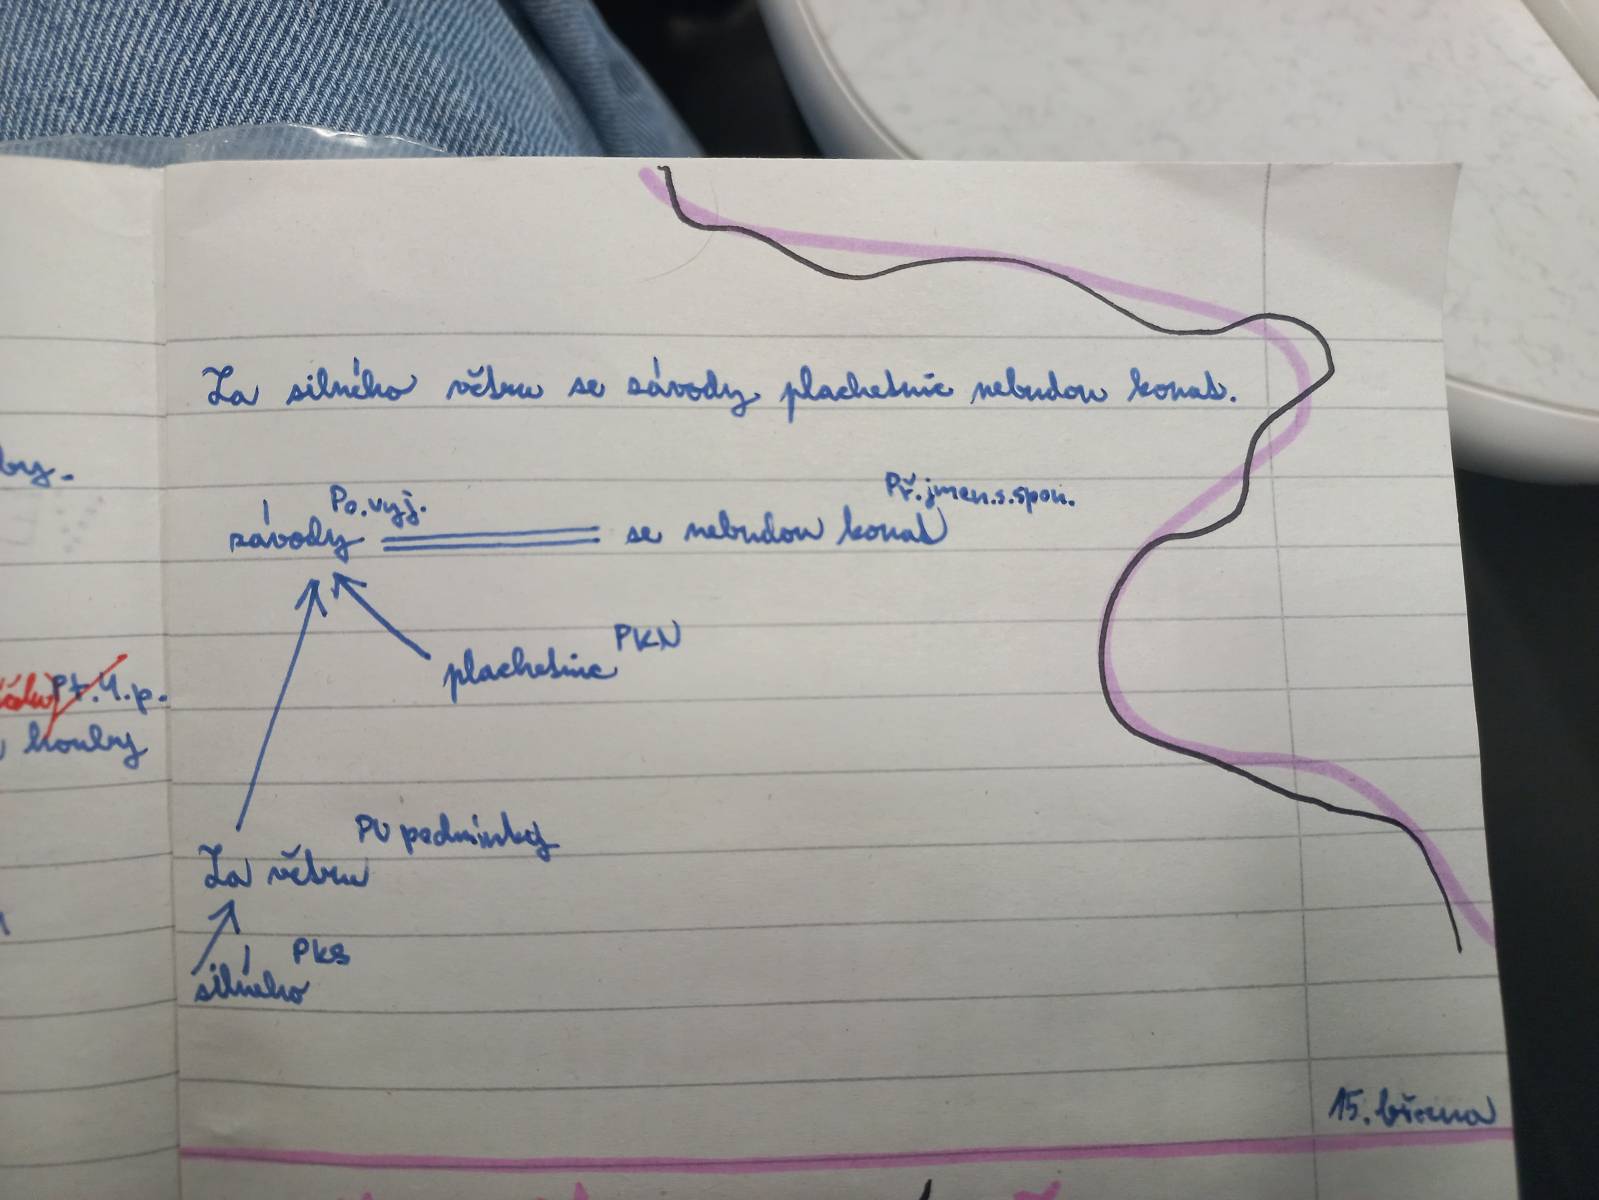 Za silného větru se závody plachetnic nebudou konat.
by.
závody Po.vyj. se nebudou konat Př.jmen.s.spon.
plachetnic PKN
Pt.4.p.
houby
Za větru PU podmínky
silného PKS
15. března